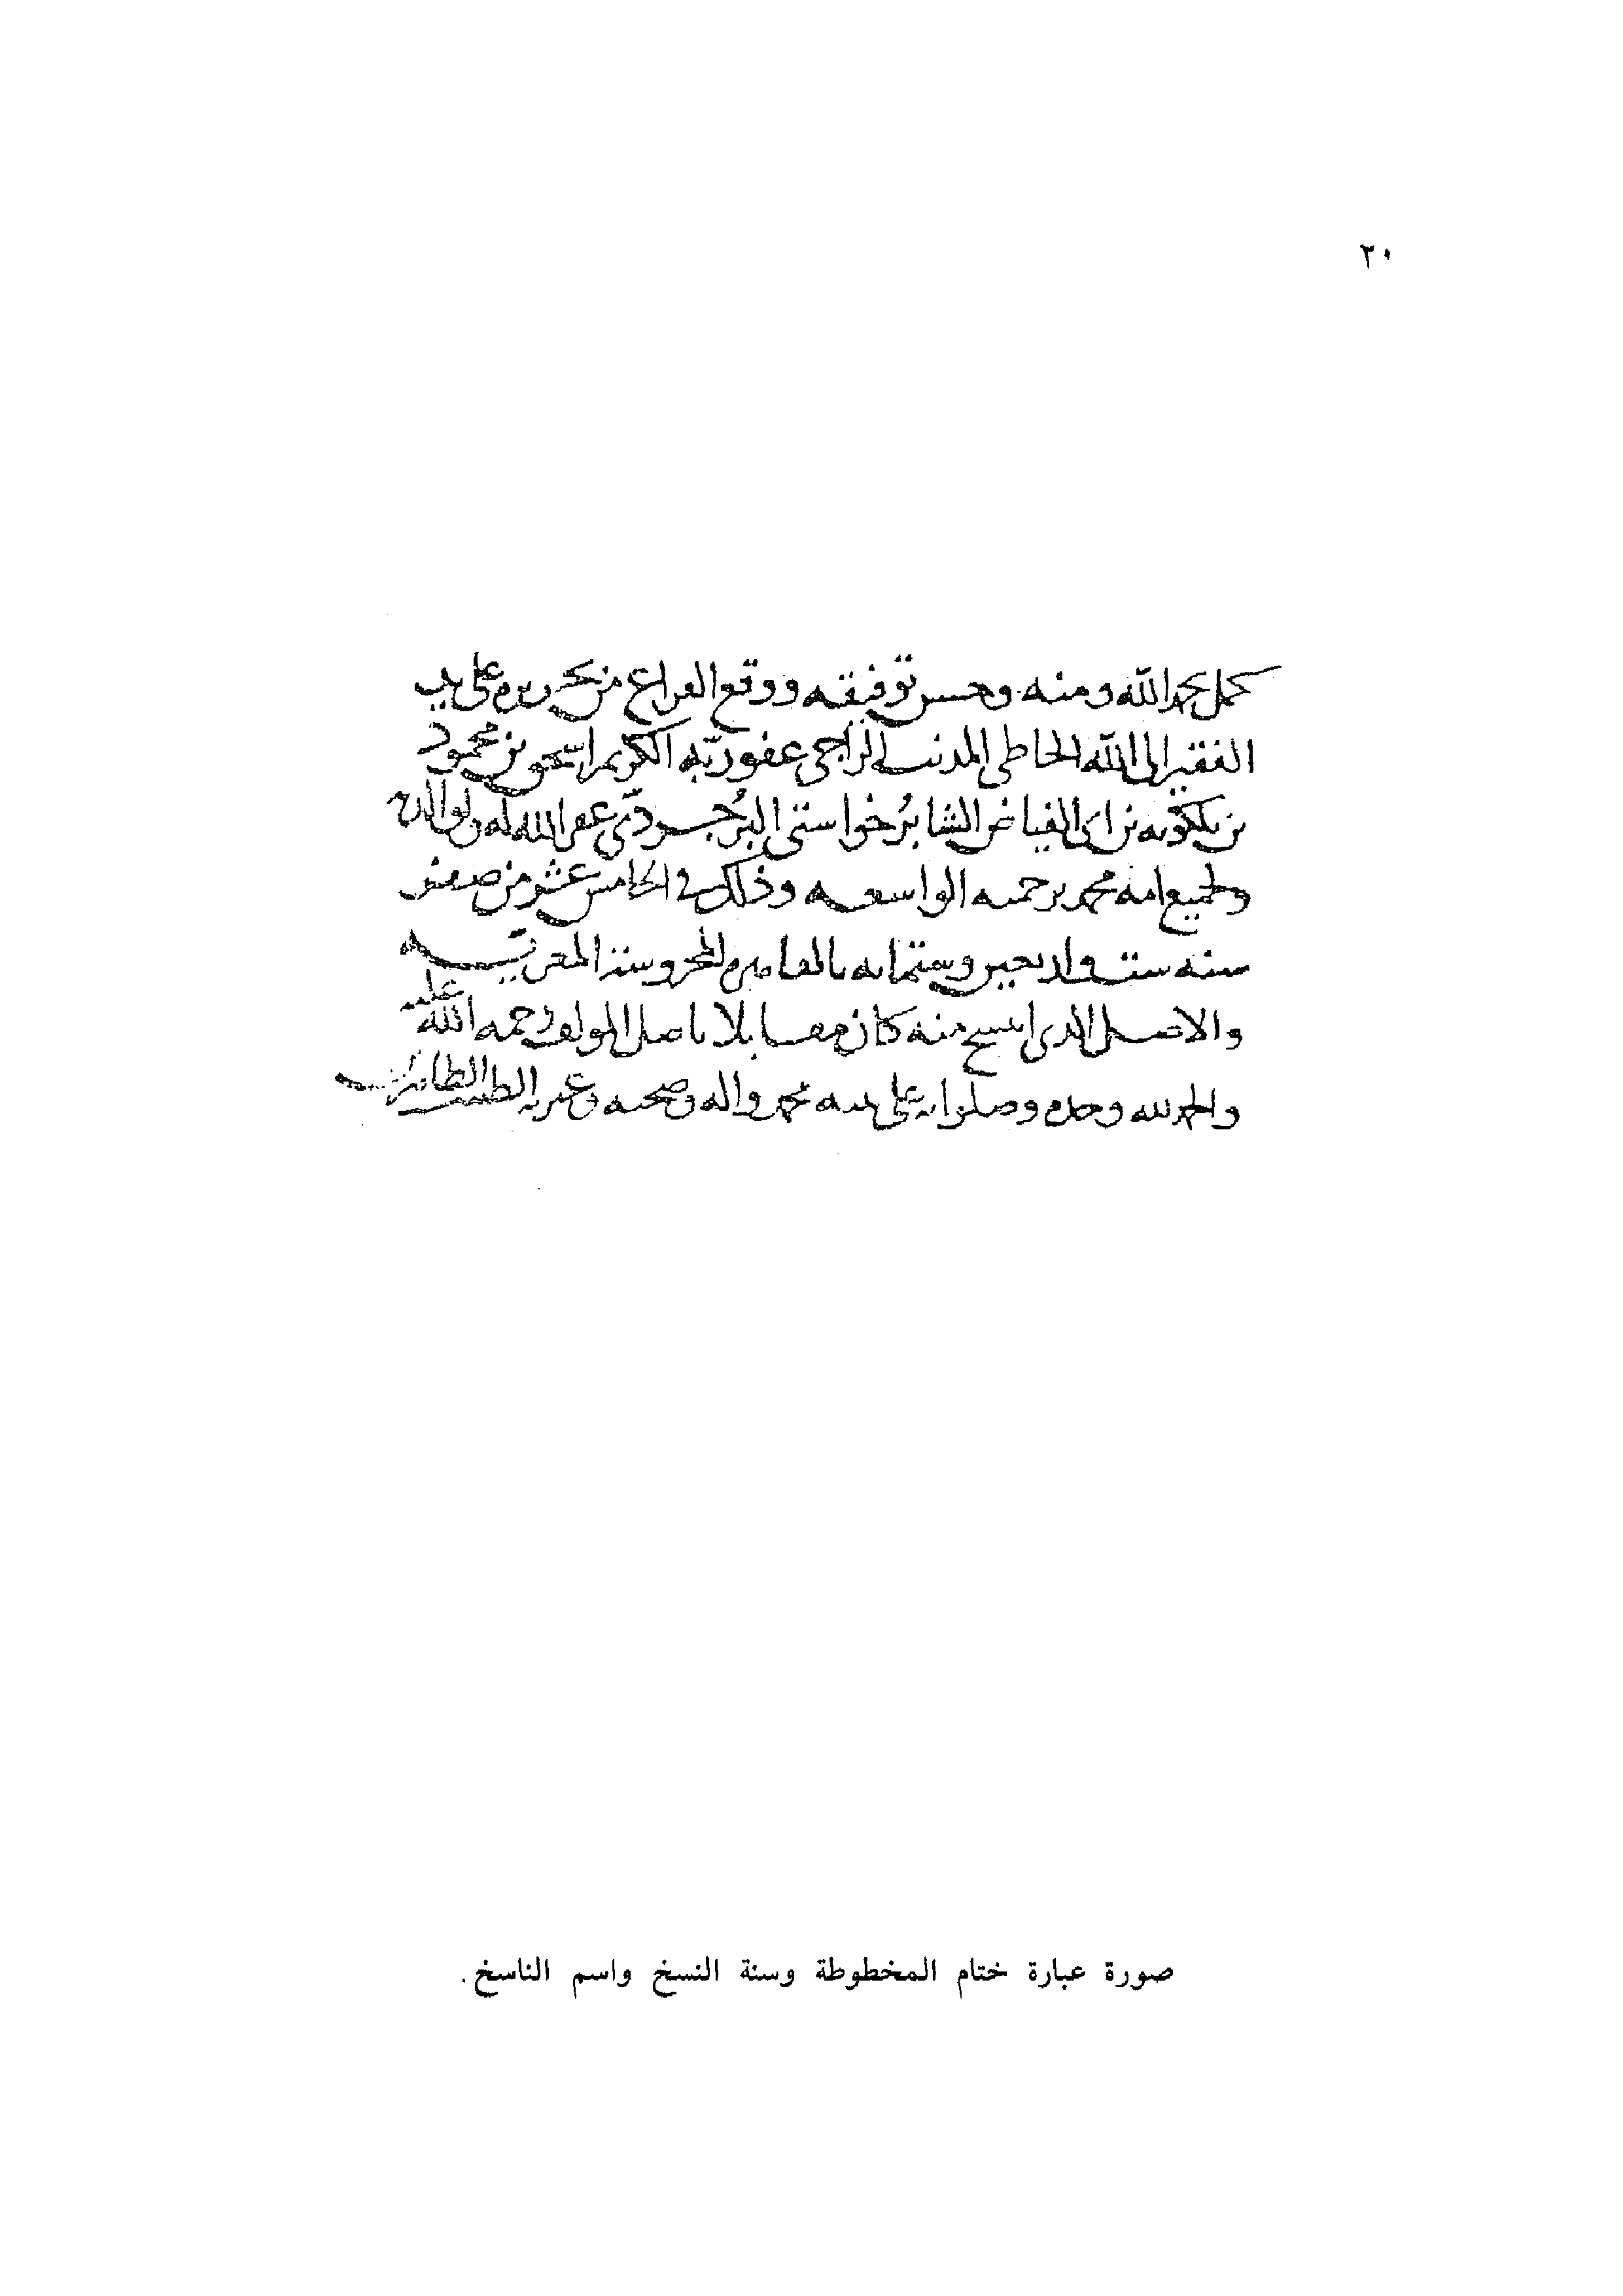 ٢٠
كمل بحمد الله ومنه وحسن توفيقه ووقع الفراغ من تحريره على يد
الفقير الى الله الخاطى المذنب الراجى عفو ربه الكريم اسحق بن محمود
بن بلكويه بن ابى الفياض الشابرخواستى البرجردى غفر الله له ولوالديه
ولجميع امة محمد برحمته الواسعه وذلك فى الخامس عشر من صفر
سنه ست واربعين وستمايه بالقاهره المحروسة المعزيه
والاصل الذى انتسخ منه كان مقابلا باصل المولف رحمه الله عليه
والحمد لله وحده وصلواته على نبيه محمد واله وصحبه وعترته الطيبين الطاهرين
صورة عبارة ختام المخطوطة وسنة النسخ واسم الناسخ.